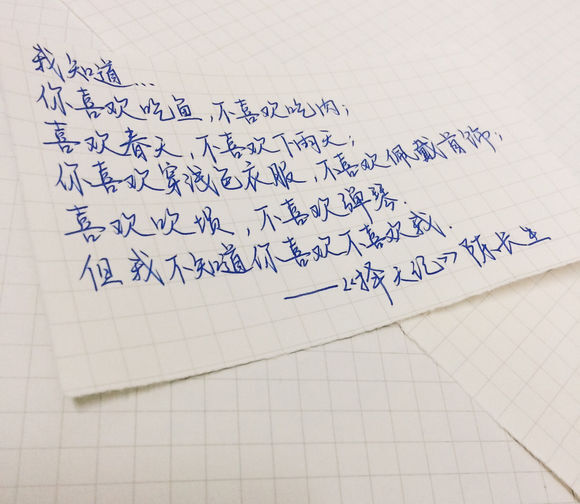 我知道...
你喜欢吃鱼,不喜欢吃肉;
喜欢春天,不喜欢下雨天;
你喜欢穿浅色衣服,不喜欢佩戴首饰;
喜欢吹埙,不喜欢弹琴.
但我不知道你喜欢不喜欢我.
——《择天记》陈长生